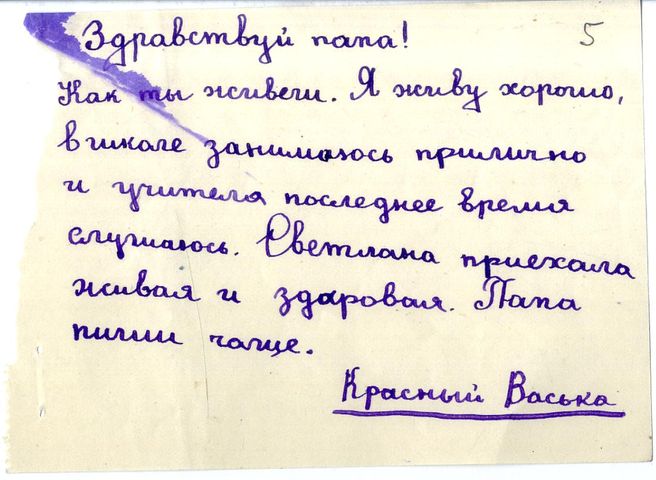 Здравствуй папа! 5
Как ты живеш. Я живу хорошо,
в школе занимаюсь прилично
и учителя последнее время
слушаюсь. Светлана приехала
живая и здаровая. Папа
пиши чаще.
Красный Васька